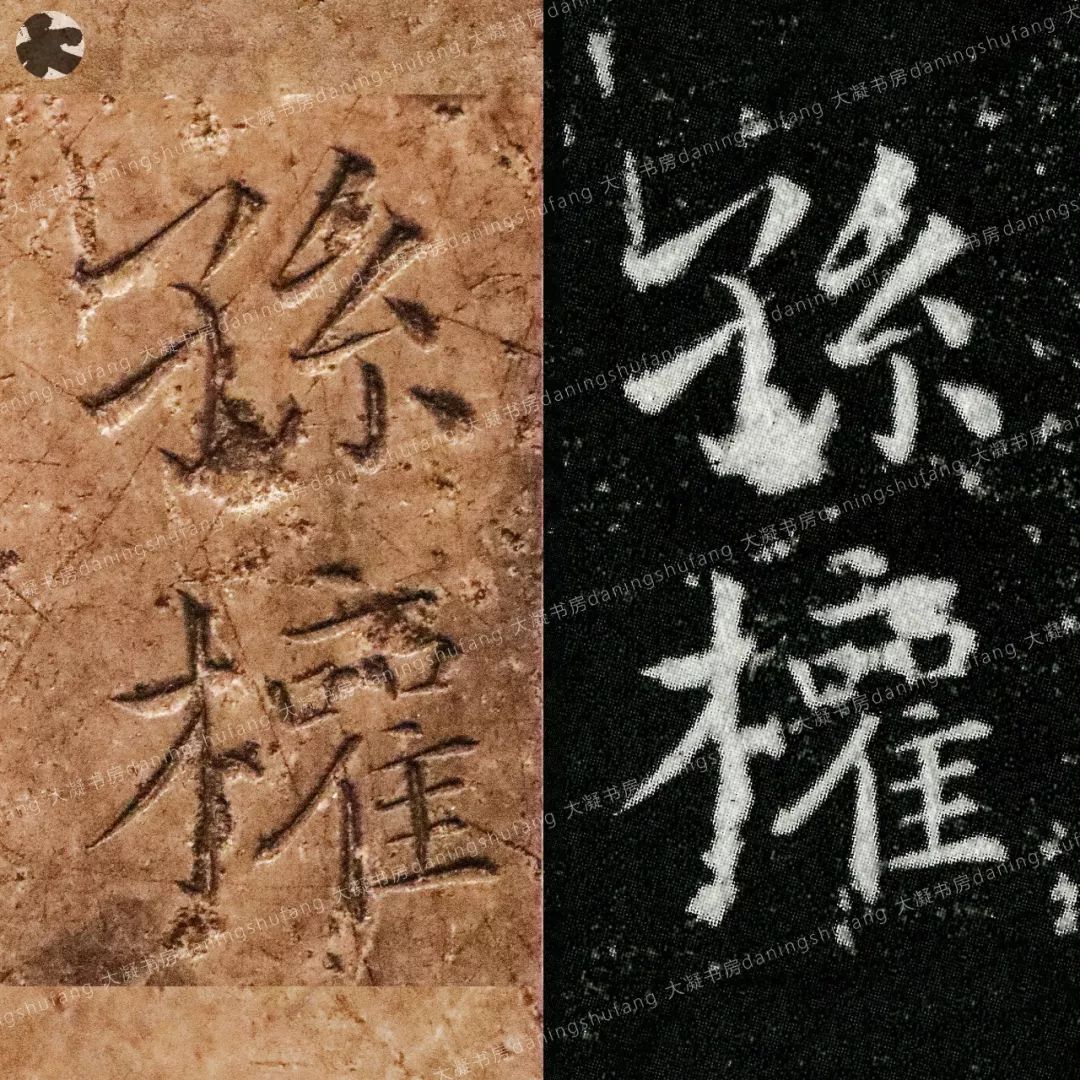 孫
權
孫
權
大凝书房daningshufang